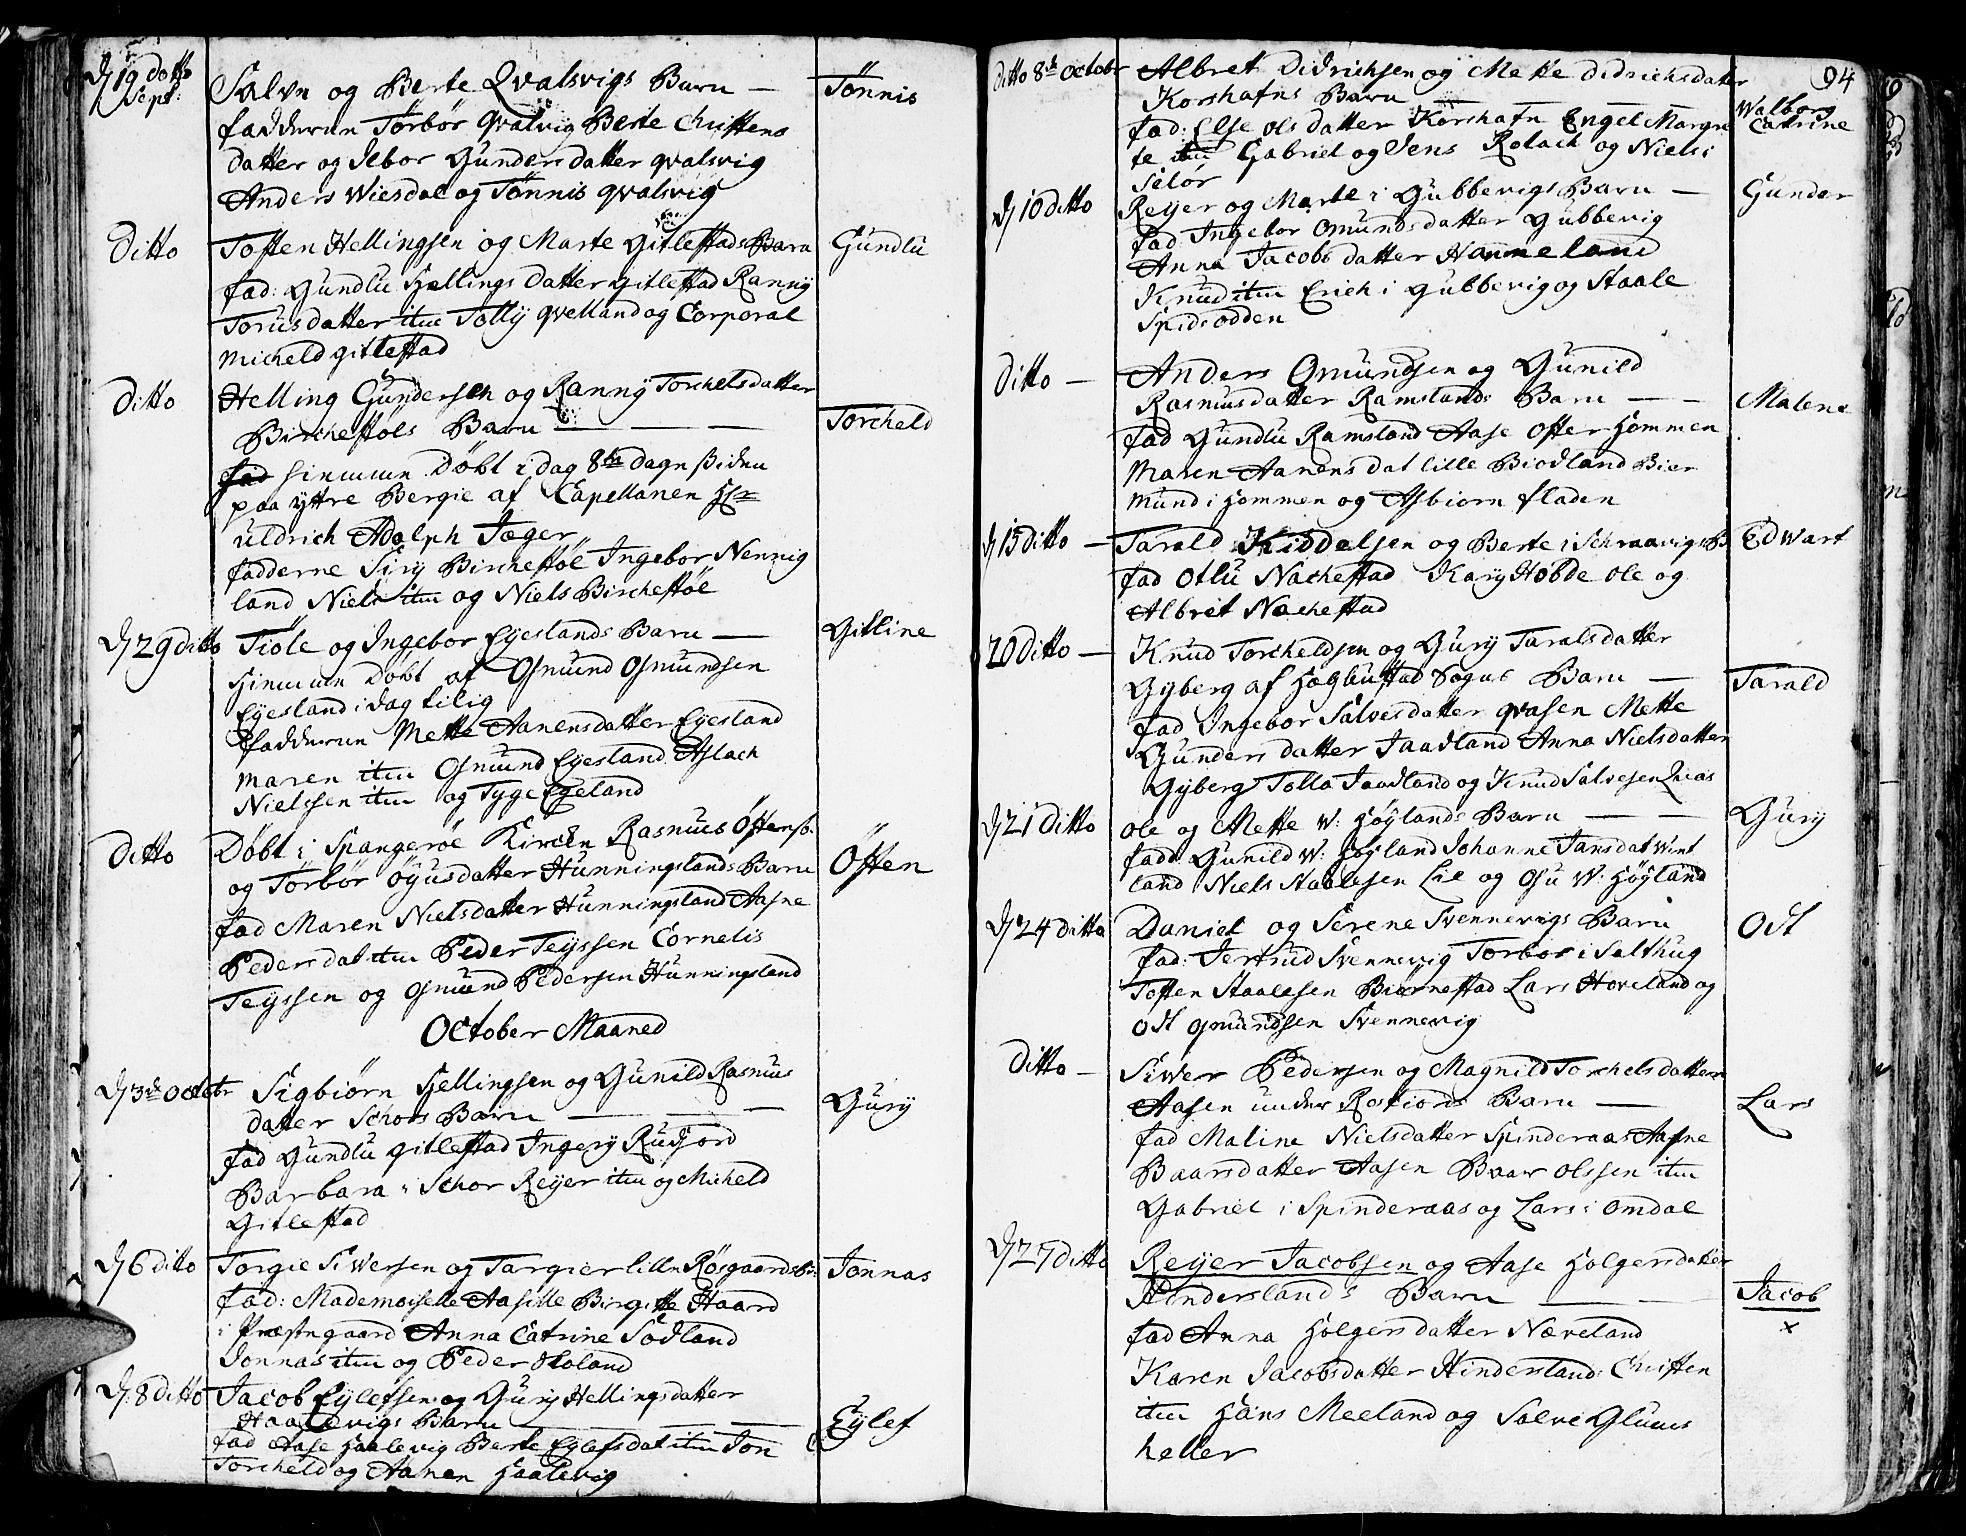 D 19 Ditto
Sept:
Salve og Berte Qvalsvigs Barn — Tönnis
fadderne Törbör qvalvig Berte Christens
datter og Ilbor Gunders datter qvalsvig
Anders Wiesdal og Tönnis qvalsvig
Ditto Tosten Hellingsen og Marte Gitlestads Barn Gundlu
fad: Gundlu Hellings datter gitlestad Ranny
Torusdatter item Tolly qvelland og Corporal
Micheld gitlestad
Ditto Helling Gundersen og Ranny Torchelsdatter
Birchestöls Barn — — — Torcheld
fad hiemme Döbt i dag 8te dagen siden
paa yttre Bergie af Capellanen Hr
uldrich Adolph Jæger
fadderne Siry Birchestöl Ingebor Nennig
land Niels item og Niels Birchestöl
D 29 ditto Tiöle og Ingebor Eyeslands Barn — Gitline
Hiemme Döbt af Osmund Osmundsen
Eyesland i dag tilig
fadderne Mette Aanensdatter Eyesland
Maren item Osmund Eyesland Aslach
Nielssen item og Tyge Egeland
Ditto Döbt i Spangerøe Kircken Rasmus Östens.
og Törbör öyusdatter Hunningslands Barn Östen
fad Maren Nielsdatter Hunningsland Aasne
Peders dat item Peder Teyssen Cornelis
Teyssen og Osmund Pedersen Hunningsland
October Maaned
D 3de Octobr Sigbiörn Hellingsen og Gunild Rasmus
datter Schors Barn — — — Gury
fad Gundlu gitlestad Ingery Rudjord
Barbara i Schor Reyer item og Micheld
Gitlestad
D 6 ditto Torgie Siversen og Targier lille Rösgaards B: Jonnas
fad: Mademoiselle Aasille Birgitte Haard
i Præstegaard Anna Catrine Södland
Jonnas item og Peder Holand
D. 8 ditto Jacob Eylefsen og Gury Hellingsdatter
Haalevigs Barn — — Eylef
fad Aase Haalevig Berte Eylefsdat item Jon
Torcheld og Aanen Haalevig
94
Ditto 8de Octobr Albret Didrichsen og Mette Didrichsdatter
Korshafns Barn — — Walborg
fad: Else Ols datter Korshafn Engel Margre Catrine
te item Gabriel og Jens Rolach og Niels i
Selör
D 10 ditto Reyer og Marte i Gubbevigs Barn — Gunder
fad Ingebor Omunds datter Gubbevig
Anna Jacobs datter Hanneland
Knud item Erich i Gubbevig og Staale
Spidsodden
Ditto — Anders Omundsen og Gunild
Rasmusdatter Ramslands Barn — — Malene
fad Gundlu Ramsland Aase Öster Hommen
Maren Aanens dat lille Biodland Bier
mund i Hommen og Asbiorn fladen
D 15 ditto — Tarald Kiddelsen og Berte i Schraavigs B Edwart
fad Otlu Nachestad Kary Hobde Ole og
Albret Nachestad
20 ditto — Knud Torcheldsen og Gury Taralsdatter
Gyberg af Hægbustad Sogns Barn — Tarald
fad Ingebor Salvesdatter qvasen Mette
Gunders datter Jaadland Anna Nielsdatter
Gyberg Tolla Jaadland og Knud Salvesen Qvas
D 21 ditto Ole og Mette W: Höylands Barn — — Gury
fadd: Gunild W: Höyland Johanne Jansdat Wint
land Niels Staalesen Lie og Osu W. Höyland
D 24 ditto Daniel og Serene Svennevigs Barn Odt
fad: Jertrud Svennevig Torbor i Salthug
Tosten Staalesen Biörnestad Lars Hoveland og
Odt Omundsen Svennevig
Ditto — Siwer Pedersen og Magnild Torchelsdatter
Aasen under Rosfiords Barn — Lars
fad Maline Nielsdatter Spinderaas Aasne
Baarsdatter Aasen Baar Olssen item
Gabriel i Spinderaas og Lars i Omdal
D 27 ditto Reyer Jacobsen og Aase Holgersdatter
Hinderslands Barn — — Jacob
x
fad Anna Holgersdatter Næveland
Karen Jacobsdatter Hindersland: Christen
item Hans Meeland og Salve Glums
heller